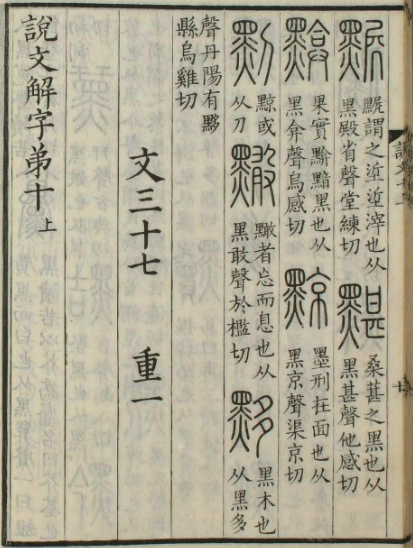 謂之垽垽滓也从黑殿省聲堂練切 黮 桑葚之黑也从黑甚聲他感切
黭 果實黭黯黑也从黑弇聲烏感切 黥 墨刑在面也从黑京聲渠京切
黥或从刀 者忘而息也从黑敢聲於檻切 黟 黑木也从黑多
聲丹陽有黟縣烏雞切
文三十七 重一
說文解字弟十上